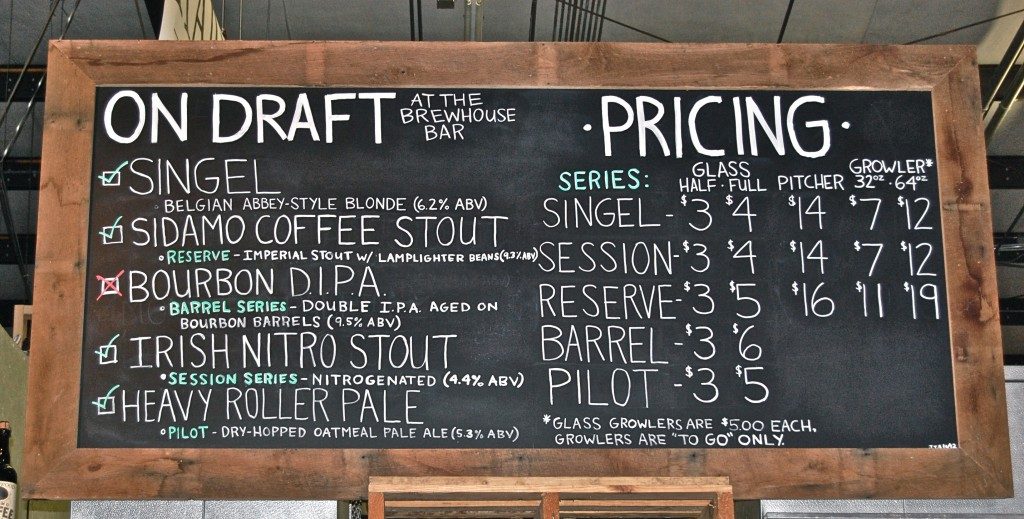 ON DRAFT AT THE
BREWHOUSE
BAR
SINGEL
BELGIAN ABBEY-STYLE BLONDE (6.2% ABV)
SIDAMO COFFEE STOUT
RESERVE - IMPERIAL STOUT W/ LAMPLIGHTER BEANS (9.3% ABV)
BOURBON D.I.P.A.
BARREL SERIES - DOUBLE I.P.A. AGED ON
BOURBON BARRELS (9.5% ABV)
IRISH NITRO STOUT
SESSION SERIES - NITROGENATED (4.4% ABV)
HEAVY ROLLER PALE
PILOT - DRY-HOPPED OATMEAL PALE ALE (5.3% ABV)
· PRICING ·
SERIES: GLASS HALF · FULL PITCHER GROWLER* 32oz · 64oz
SINGEL - $3 $4 $14 $7 $12
SESSION - $3 $4 $14 $7 $12
RESERVE - $3 $5 $16 $11 $19
BARREL - $3 $6
PILOT - $3 $5
*GLASS GROWLERS ARE $5.00 EACH,
GROWLERS ARE "TO GO" ONLY.